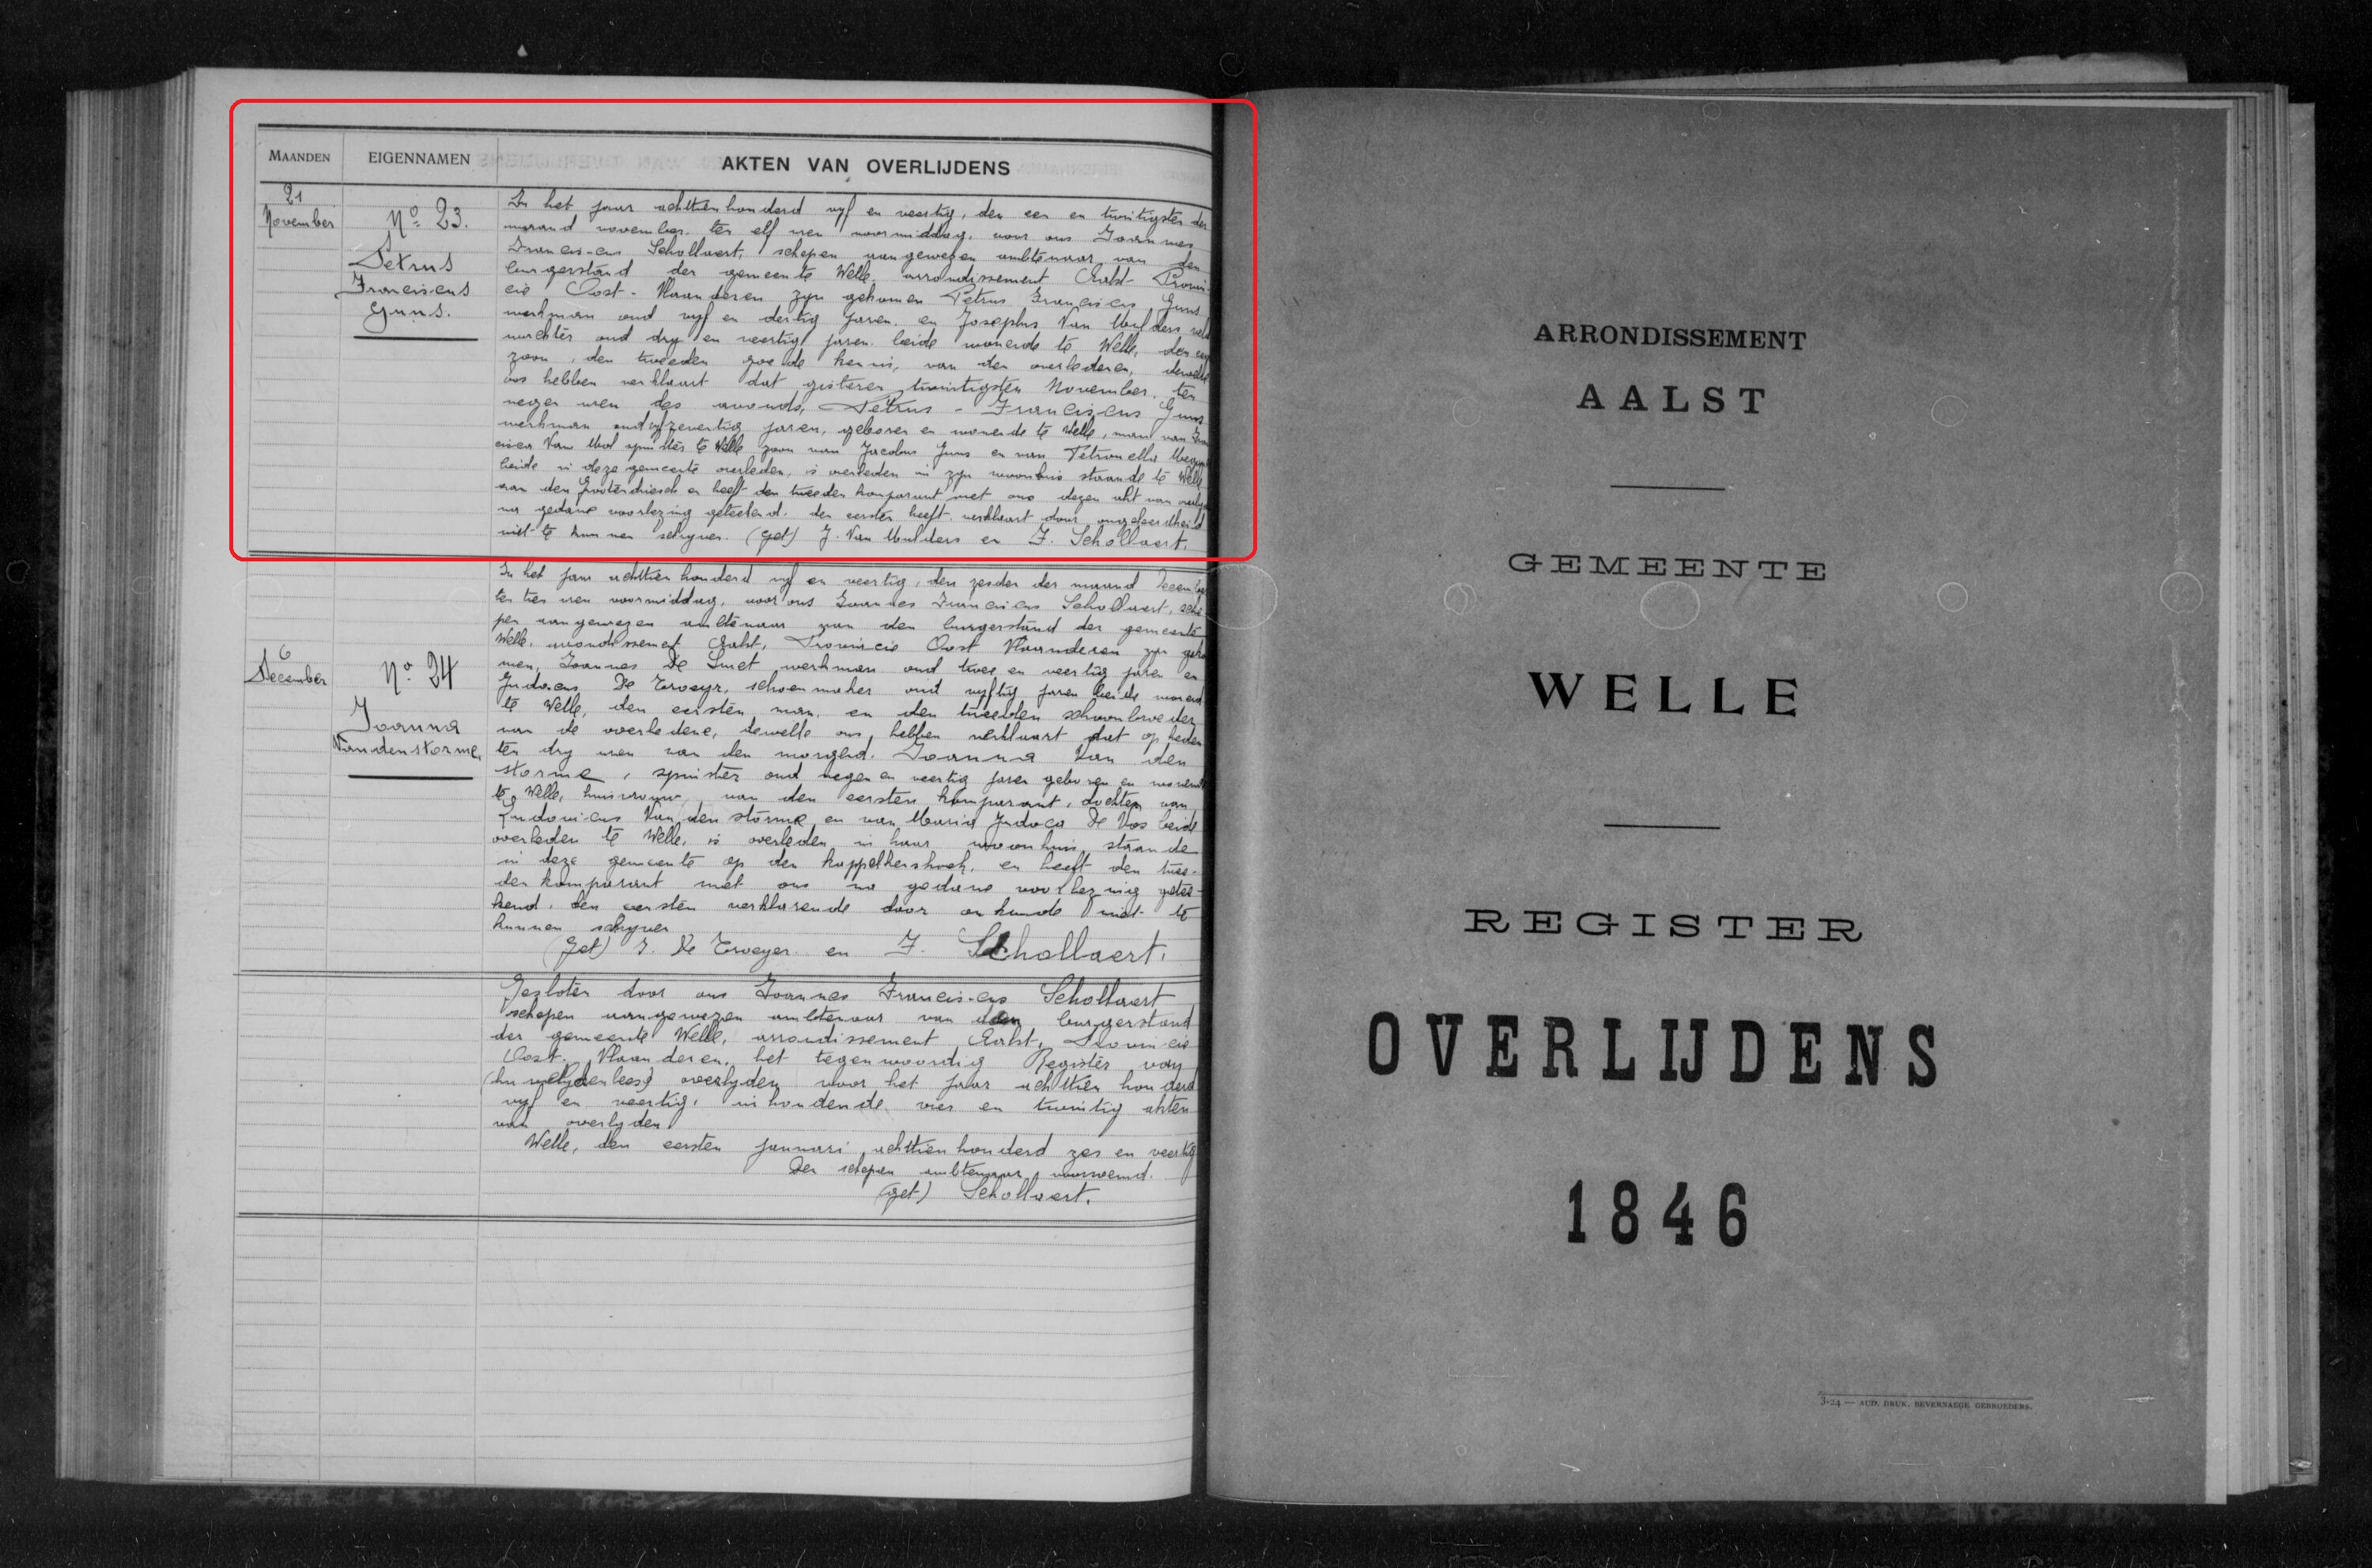 MAANDEN EIGENNAMEN AKTEN VAN OVERLIJDENS
21
November
No 23.
Petrus
Franciscus
Guns.
In het jaar achttienhonderd vyf en veertig, den een en twintigsten der
maand november. ter elf uren voormiddag, voor ons Joannes
Francis-cus Schollaert, schepen aangewezen ambtenaar van den
burgerstand der gemeente Welle, arrondissement Aalst- Provin-
cie Oost-Vlaanderen zyn gekomen Petrus Franciscus Guns
werkman oud vyf en dertig jaren. en Josephus Van Mulders
oud dry en veertig jaren. beide wonende te Welle, den
zoon, den tweeden goede kennis, van den overledenen, dewelke
ons hebben verklaart dat gisteren twintigsten November, ter
negen uren des avonds, Petrus - Franciscus Guns
werkman jaren, geboren en wonende te Welle, man van
Van Mol spinster te Welle zoon van Jacobus Guns en van Petronella
beide in deze gemeente overleden, is overleden in zyn woonhuis staande te Welle
aan den Grootendriesch en heeft den tweeden komparant met ons dezen akt van
na gedane voorlezing geteekend. den eersten heeft verklaart door ongeleerdheid
niet te kunnen schryven. (get) J. Van Mulders en J. Schollaert.
6
December
No 24
Joanna
Vandenstorme,
In het jaar achttienhonderd vyf en veertig, den zesden der maand
ter tien uren voormiddag, voor ons Joannes Francis cus Schollaert, sche-
pen aangewezen ambtenaar van den burgerstand der gemeente
Welle, arrondissement Aalst, Provincie Oost Vlaanderen zyn geko
men, Joannes De Smet werkman oud twee en veertig jaren en
Judocus De Troeyer, schoenmaker oud vyftig jaren beide wonend
te Welle, den eersten man, en den tweeden schoonbroeder
van de overledene, dewelke ons hebben verklaart dat op heden
ter dry uren van den morgend. Joanna Van den
storme, spinster oud negen en veertig jaren geboren en wonende
te Welle, huisvrouw, van den eersten komparant, dochter van
Ludovicus Van den storme en van Maria Judoca De Vos beide
overleden te Welle, is overleden in haar woonhuis staande
in deze gemeente op den kappellershoek, en heeft den twee-
den komparant met ons na gedane voorlezing getee-
kend. den eersten verklarende door onkunde niet te
kunnen schryven
(Get) J. De Troeyer en J. Schollaert.
Gesloten door ons Joannes Francis-cus Schollaert
schepen aangewezen ambtenaar van den burgerstand
der gemeente Welle, arrondissement Aalst, Provincie
Oost. Vlaanderen, het tegenwoordig Register van
(huwelyken lees) overlyden voor het jaar achttien honderd
vyf en veertig, inhoudende vier en twintig akten
van overlyden
Welle, den eersten januari achttienhonderd zes en veertig
Den schepen ambtenaar voornoemd.
(get) Schollaert.
ARRONDISSEMENT
AALST
GEMEENTE
WELLE
REGISTER
OVERLIJDENS
1846
3-24 — AUD. DRUK. BEVERNAEGE GEBROEDERS.